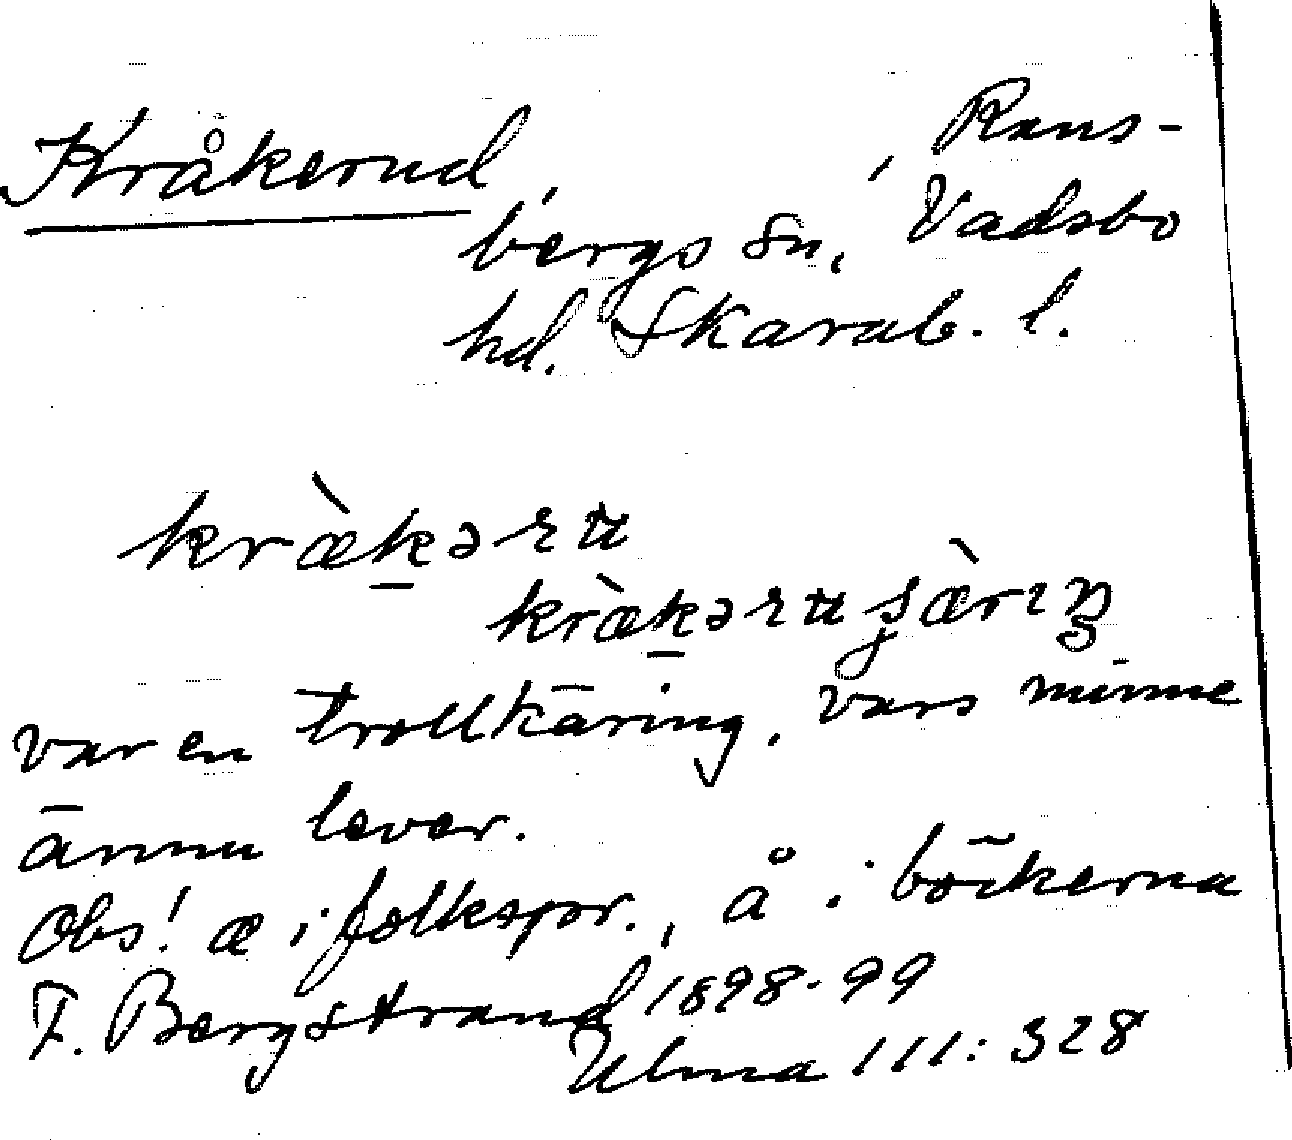 Kråkerud, , Rans-
bergs sn, Vadsbo
hd. Skarab. l.
kræ̀kəru
kræ̀kəruʂæ̀rɪŋ
var en trollkäring, vars minne
ännu lever.
Obs! æ i folkspr., å i böckerna
F. Bergstrand 1898-99
Ulma 111:328